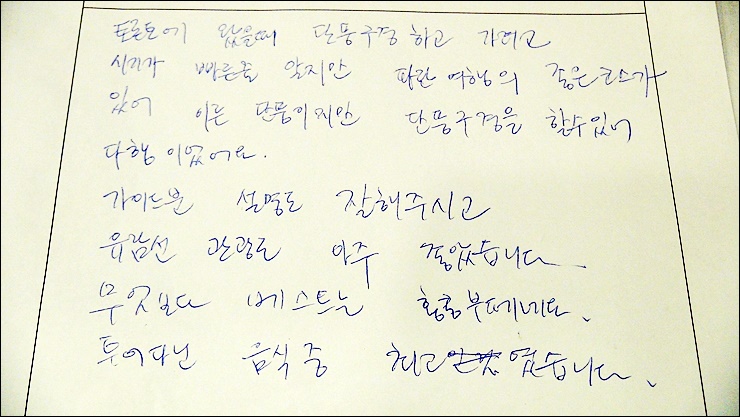 토론토에 왔을때 단풍구경 하고 가려고
시기가 빠른줄 알지만 파란 여행의 좋은 코스가
있어 이른 단풍이지만 단풍구경을 할수있어
다행이었어요.
가이드분 설명도 잘해주시고
유람선 관광도 아주 좋았습니다
무엇보다 베스트는 황홀부페네요.
투어다닌 음식중 최고였습니다.